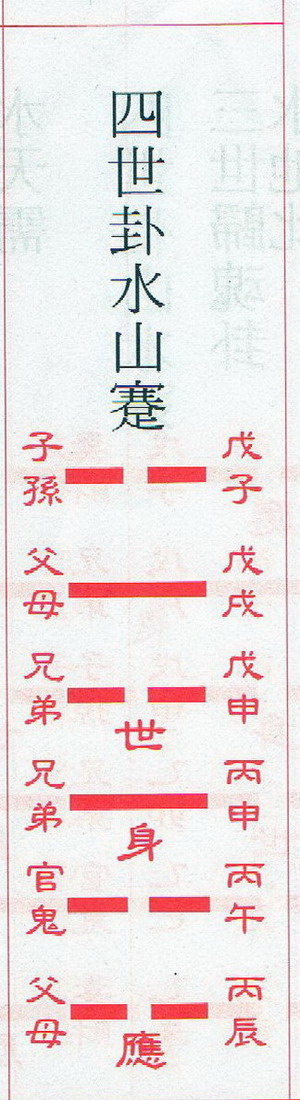 四世卦水山蹇
子孫 戊子
父母 戊戌
兄弟 戊申
世
兄弟 丙申
身
官鬼 丙午
父母 丙辰
應